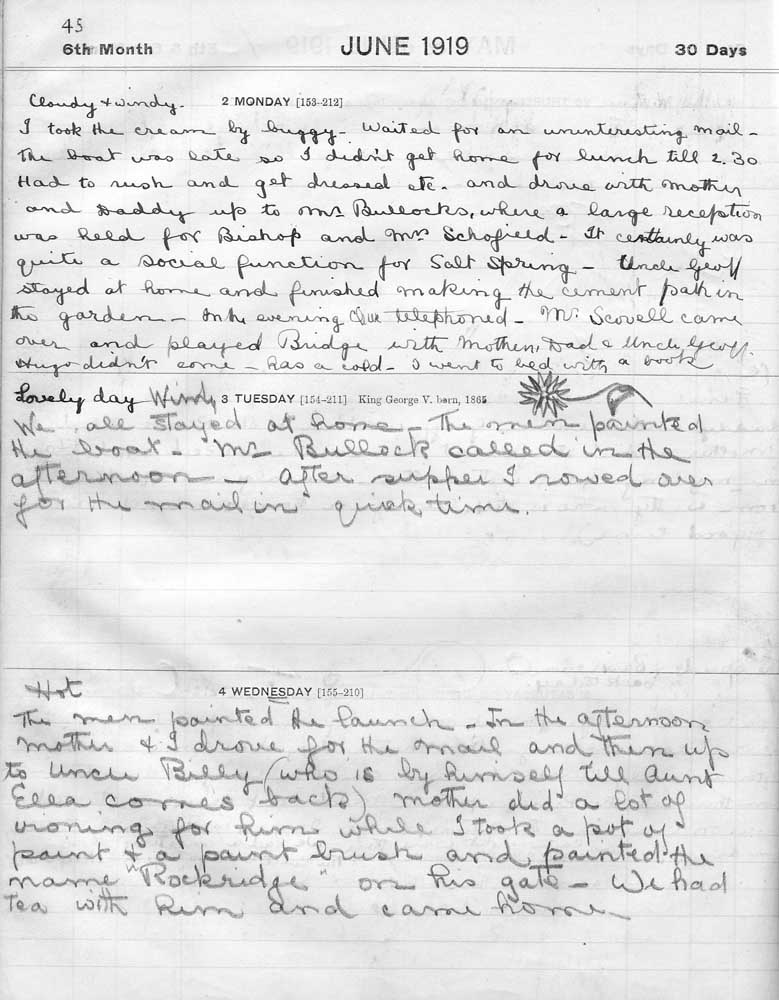 45
6th Month JUNE 1919 30 Days
Cloudy & windy. 2 MONDAY [153-212]
I took the cream by buggy - Waited for an uninteresting mail -
The boat was late so I didn't get home for lunch till 2.30
Had to rush and get dressed etc. and drove with mother
and Daddy up to Mrs Bullocks, where a large reception
was held for Bishop and Mrs Schofield - It certainly was
quite a social function for Salt Spring - Uncle Geoff
stayed at home and finished making the cement path in
the garden - In the evening telephoned - Mr. Scovell came
over and played Bridge with Mother, Dad & Uncle Geoff.
Hugo didn't come - has a cold - I went to bed with a book
Lovely day Windy 3 TUESDAY [154-211] King George V. born, 1865
We all stayed at home - The men painted
the boat - Mr Bullock called in the
afternoon - After supper I rowed over
for the mail in quick time.
Hot 4 WEDNESDAY [155-210]
The men painted the launch - In the afternoon
mother & I drove for the mail and then up
to Uncle Billy (who is by himself till Aunt
Ella comes back) mother did a lot of
ironing for him while I took a pot of
paint & a paint brush and painted the
name "Rockridge" on his gate - We had
tea with him and came home -